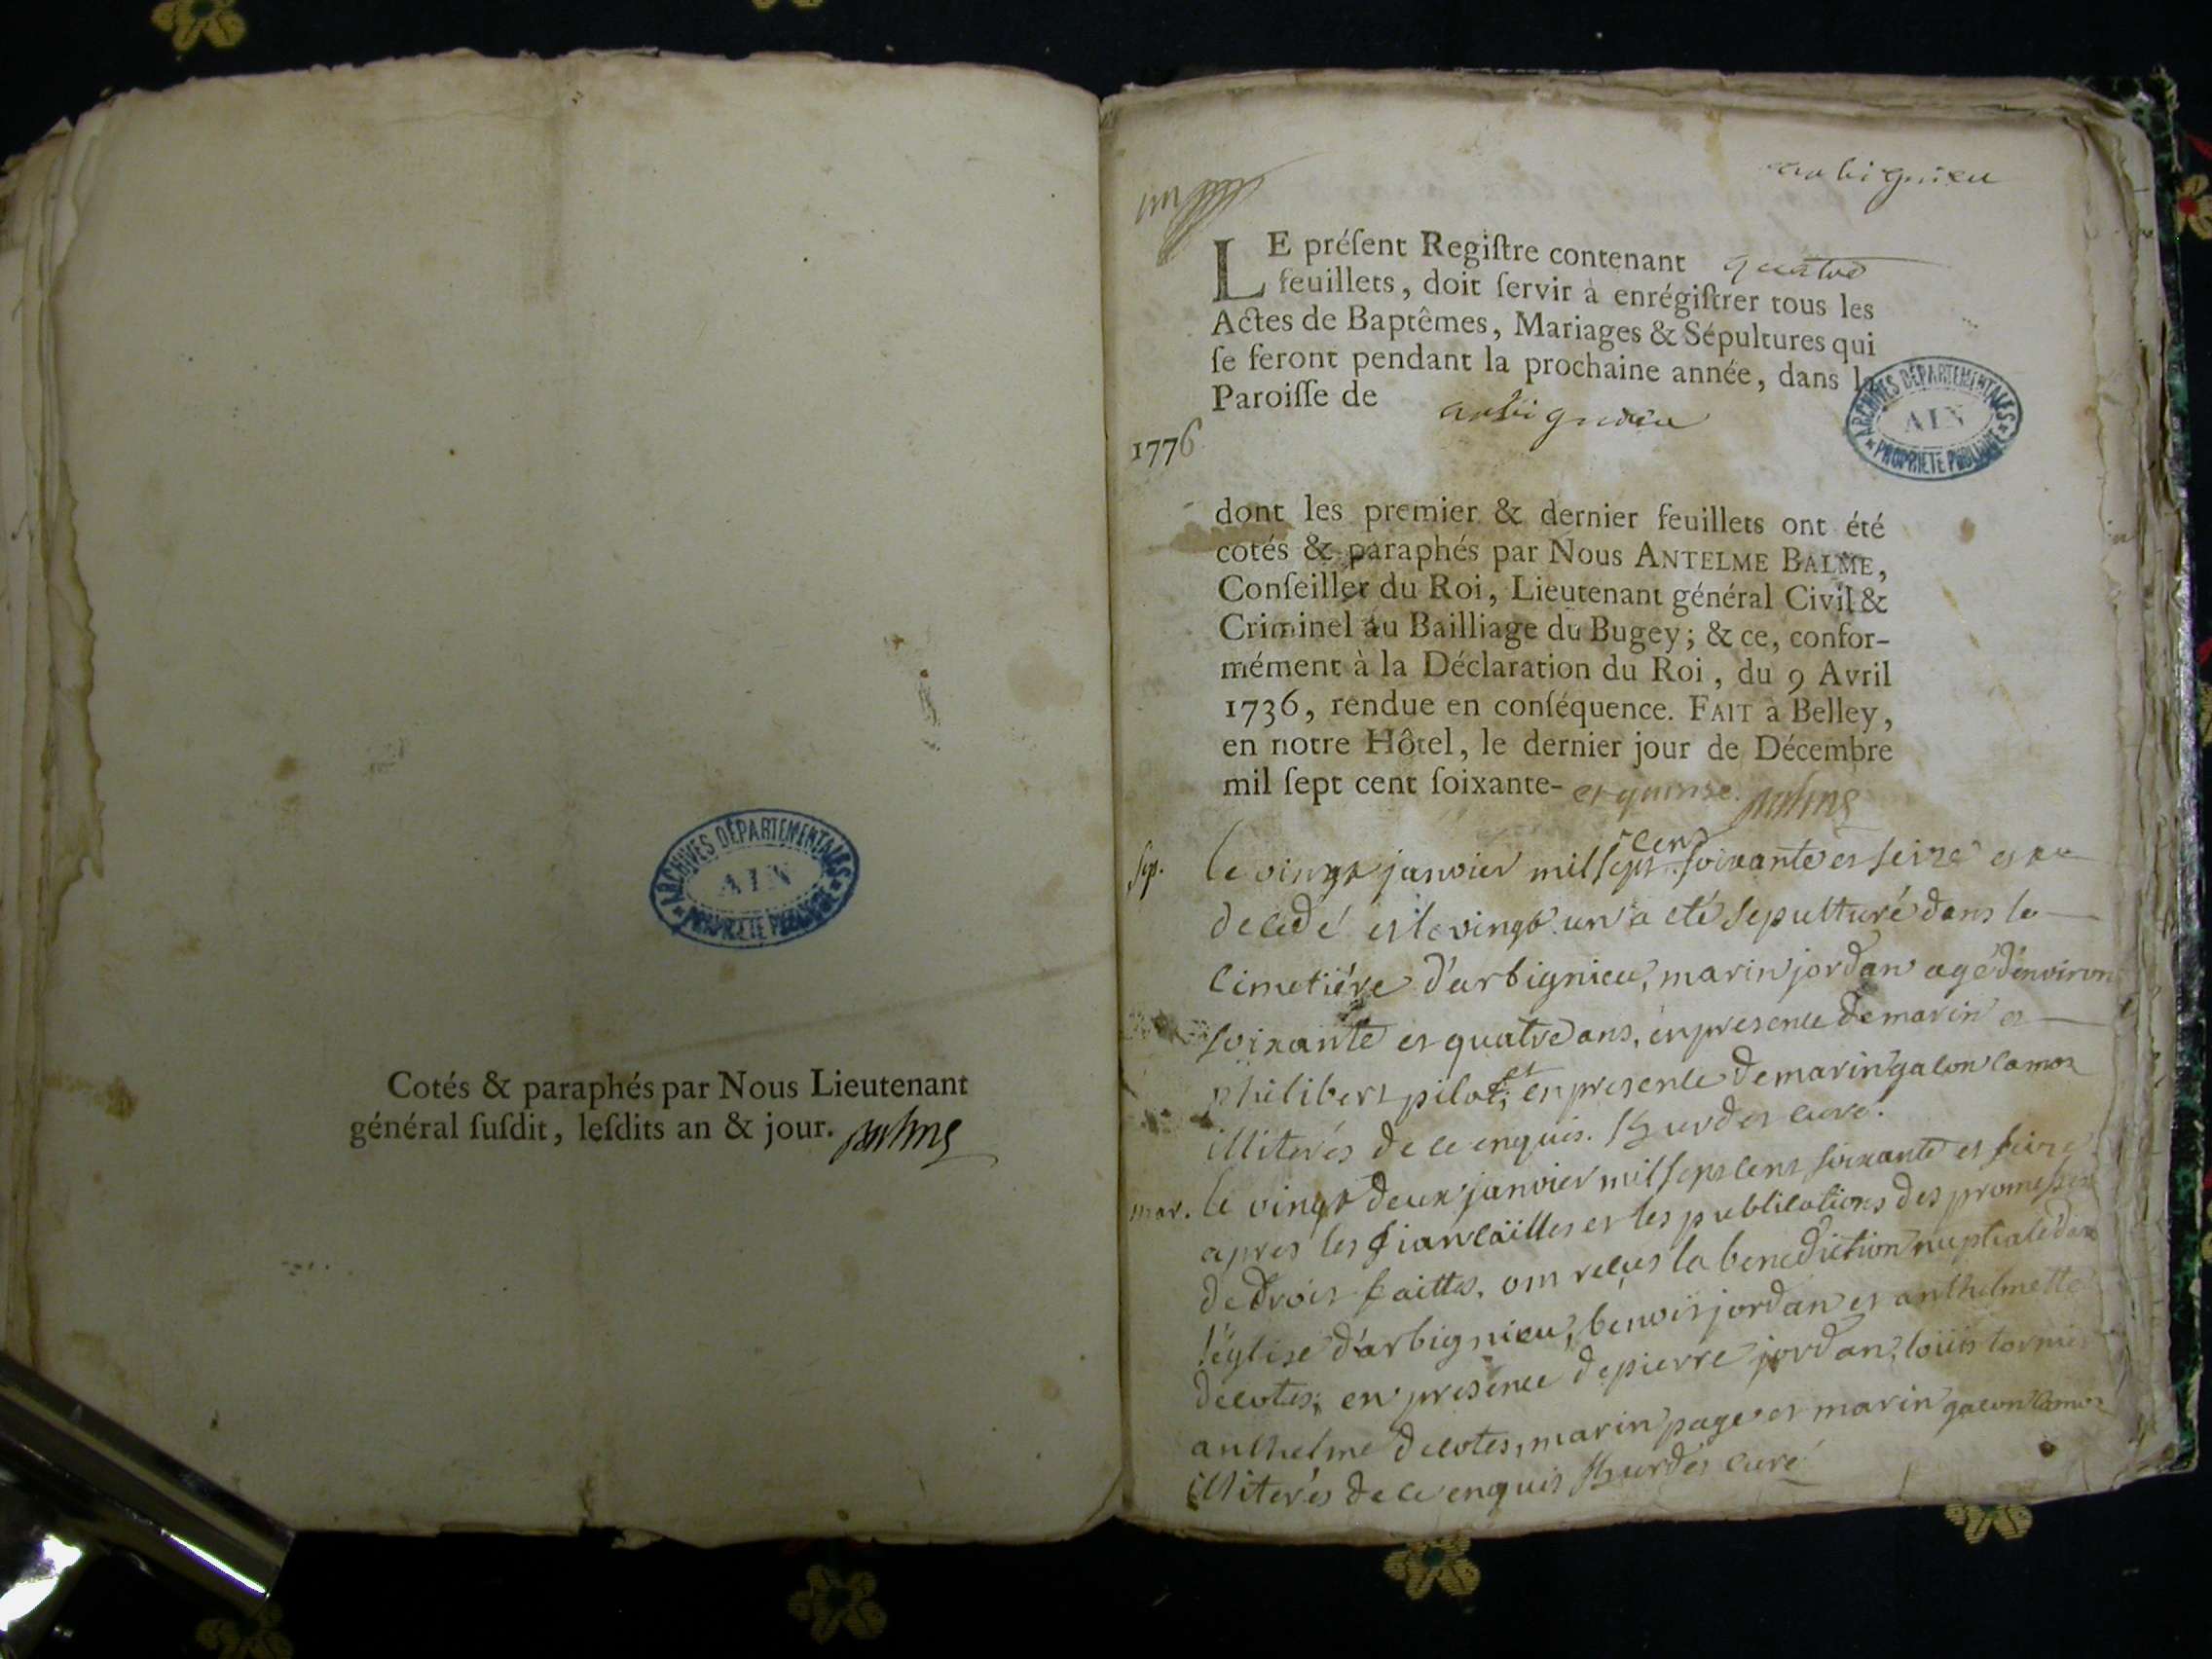 ARCHIVES DÉPARTEMENTALES
AIN
PROPRIÉTÉ PUBLIQUE
Cotés & paraphés par Nous Lieutenant
général ſuſdit, leſdits an & jour.
arbignieu
LE préſent Regiſtre contenant quatre
feuillets, doit ſervir à enrégiſtrer tous les
Actes de Baptêmes, Mariages & Sépultures qui
ſe feront pendant la prochaine année, dans la
Paroiſſe de arbignieu
ARCHIVES DÉPARTEMENTALES
AIN
PROPRIÉTÉ PUBLIQUE
1776
dont les premier & dernier feuillets ont été
cotés & paraphés par Nous ANTELME BALME,
Conſeiller du Roi, Lieutenant général Civil &
Criminel au Bailliage du Bugey; & ce, confor-
mément à la Déclaration du Roi, du 9 Avril
1736, rendue en conſéquence. FAIT à Belley,
en notre Hôtel, le dernier jour de Décembre
mil ſept cent ſoixante- et quinse.
sep. le vingt janvier mil sept cent soixante et seize est
decedé et le vingt un a eté sepulturé dans le
cimetiére d'arbignieu, marin jordan agé d'environ
soixante et quatre ans, en presence de marin et
philibert pilot; et en presence de marin galon
illiterés de ce enquis. curé.
mar. le vingt deux janvier mil sept cent soixante et seize
apres les fiancailles et les publications des promesses
de droit faittes, ont reçus la benediction nuptiale dans
l'église d'arbignieu, benoit jordan et anthelmette
decotes; en presence de pierre jordan, loüis
anthelme decotes, marin page et marin galon
illiterés de ce enquis curé